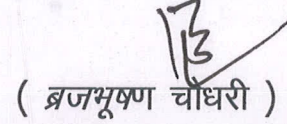 ( ब्रजभूषण चौधरी )